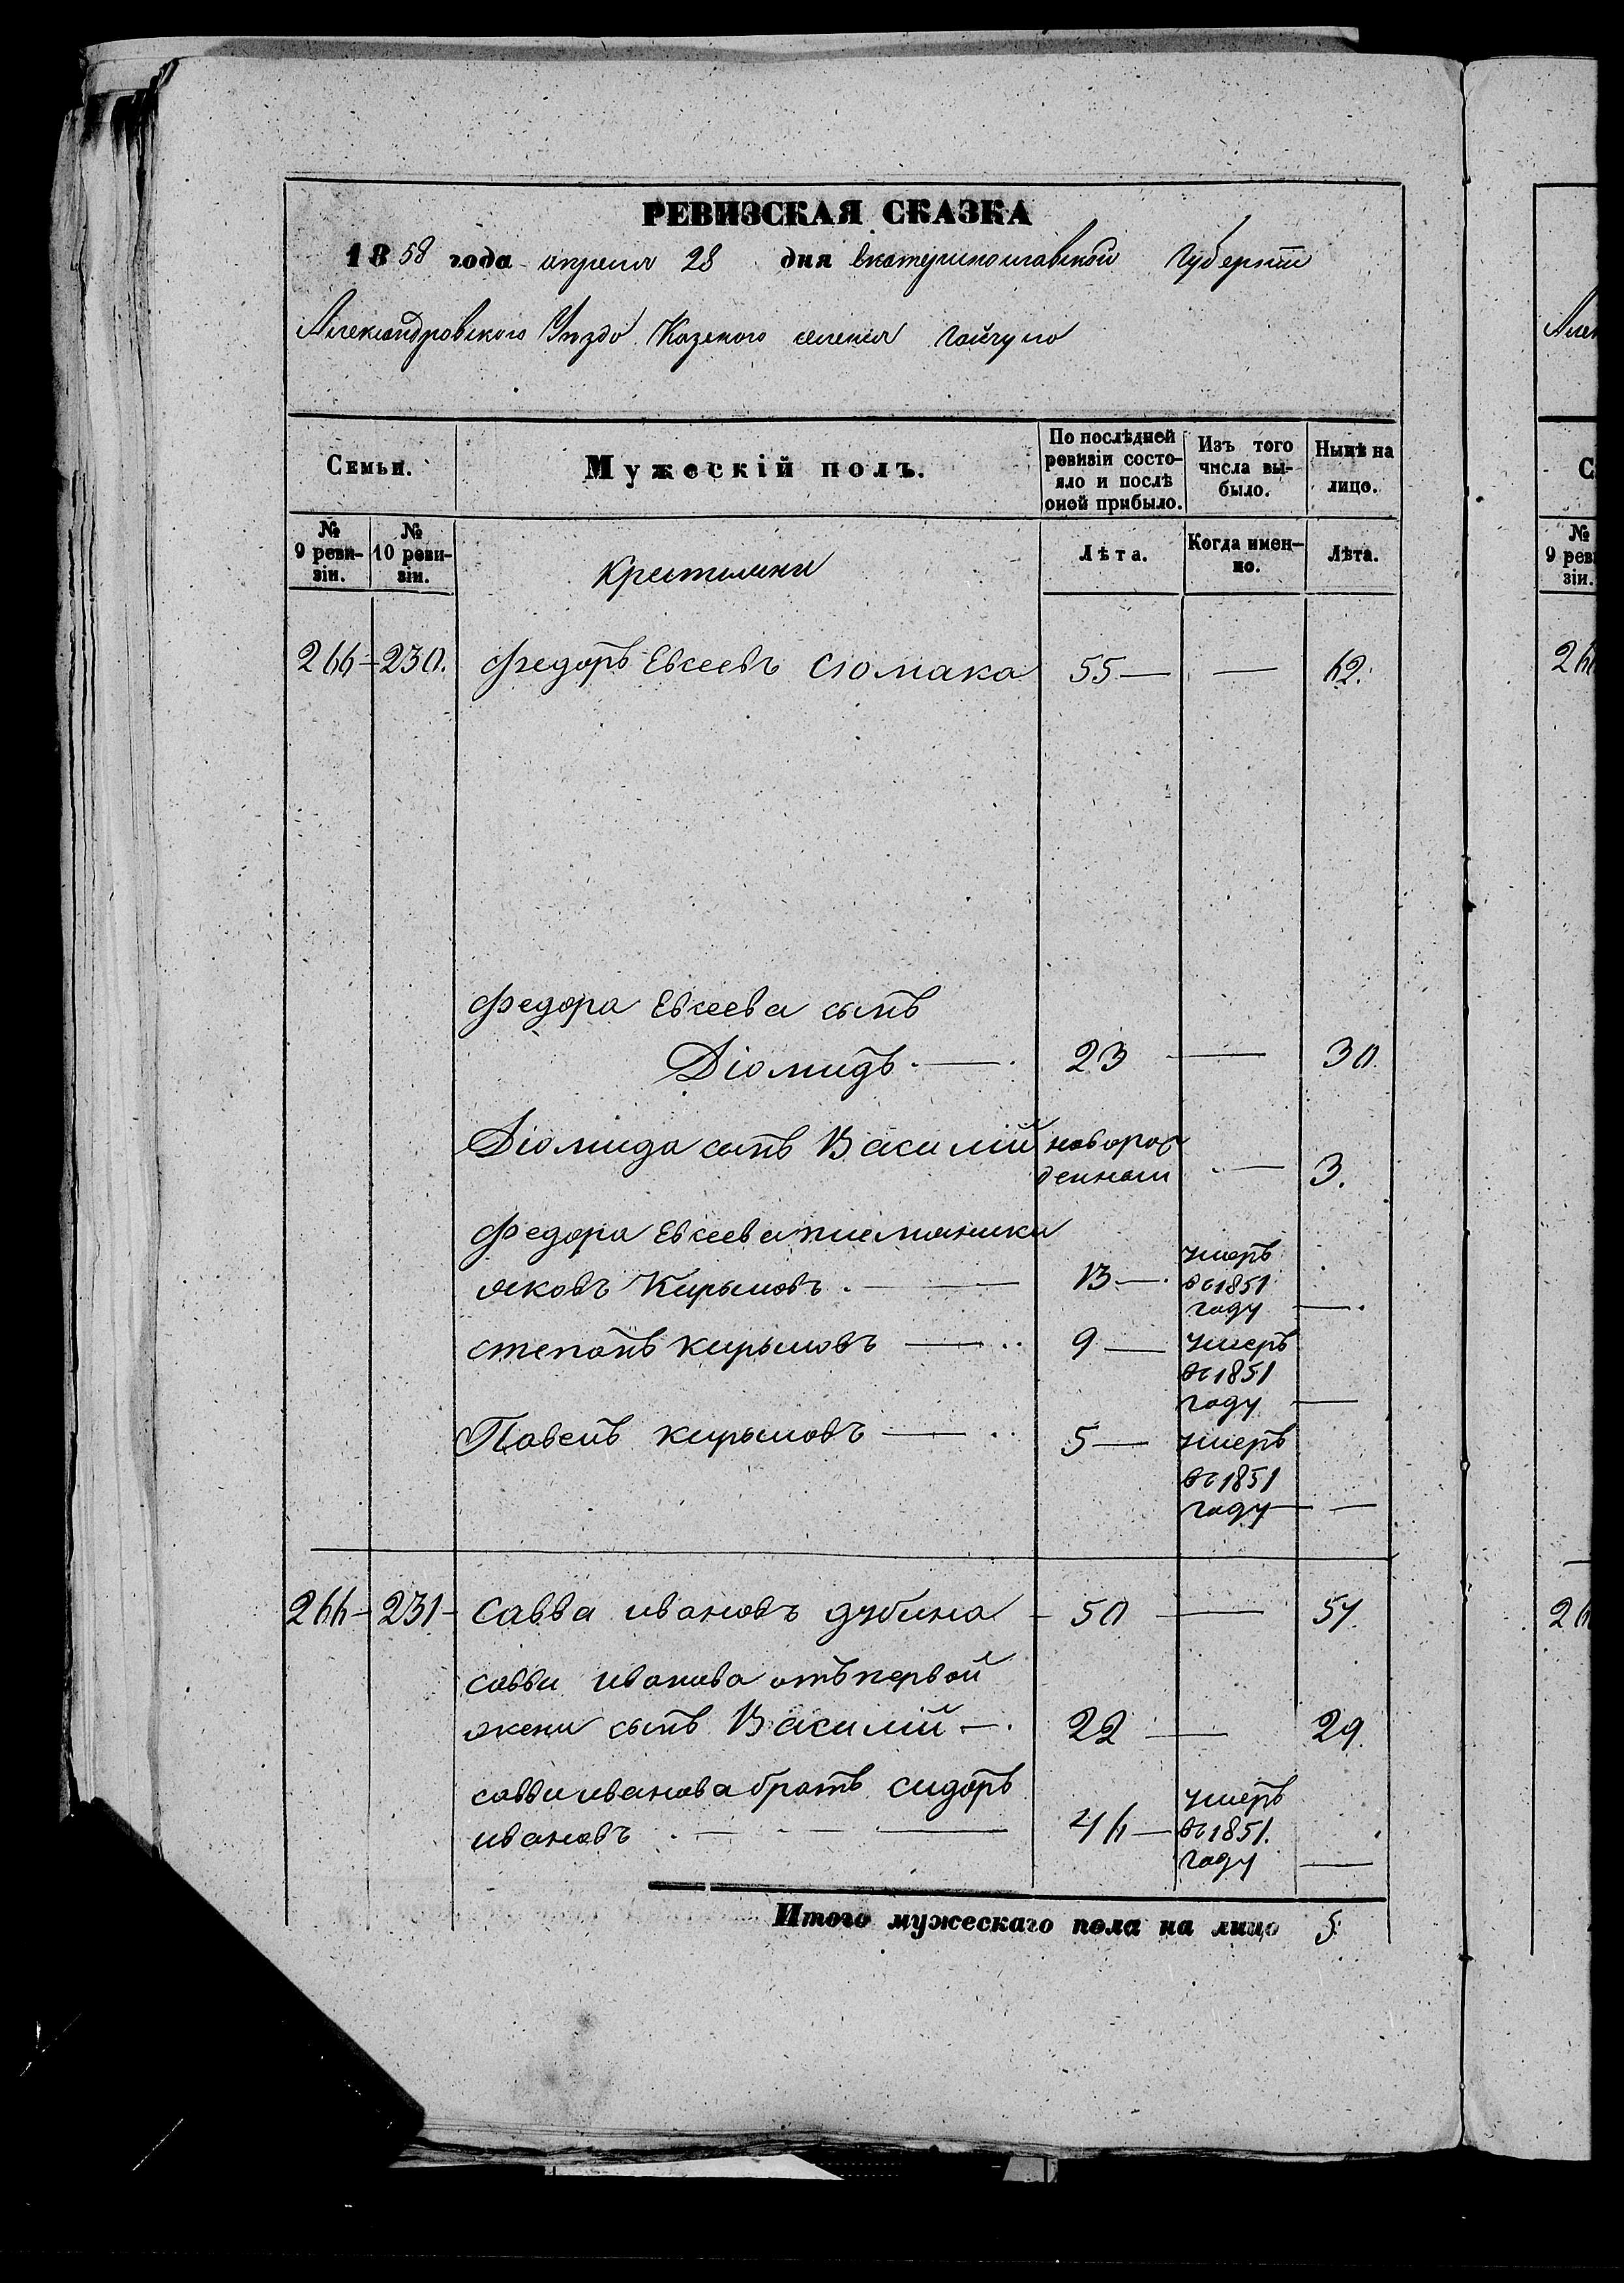 РЕВИЗСКАЯ СКАЗКА
1858 года апреля 28 дня Екатеринославской Губернiи
Александровского Уъздо Казеного селения Гайчуло
Семьи.
Мужескiй полъ.
По послѣдней ревизiи состо-яло и послѣ оной прибыло.
Изъ того числа вы-было.
Нынѣ на лицо.
№ 9 реви-зiи.
№ 10 реви-зiи.
Крестьяни
Лѣта.
Когда имен-но.
Лѣта.
266 - 230. Федоръ Евсеевъ Сюмака 55 — — 62.
Федора Евсеева сынъ
Дiомидъ. — . 23 — 30.
Дiомида сынъ Василiй новорож
денный — 3.
Федора Евсеева племяники
яковъ Кирыловъ. — 13 — умеръ
въ 1851
году — .
степанъ кирыловъ — .. 9 — умеръ
въ 1851
году —
Павелъ кирыловъ — .. 5 — умеръ
въ 1851
году — —
266 - 231 - савва ивановъ дубина - 50 — 57.
саввы иванова отъ первой
жены сынъ Василiй — . 22 — 29.
саввы иванова братъ сидоръ
ивановъ . — — — 46 — умеръ
въ 1851.
году —
Итого мужескаго пола на лицо 5.
Алек
С
№
9 реви
зiи.
26
26